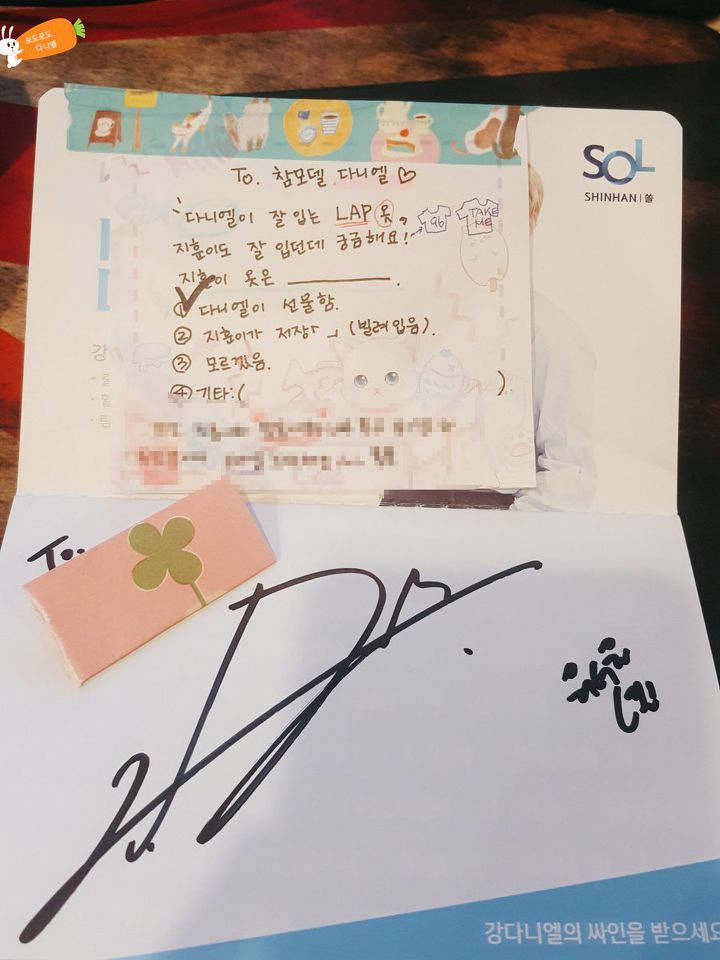 포도포도
다니엘
SOL
SHINHAN | 쏠
To. 참모델 다니엘 ♡
다니엘이 잘 입는 LAP 옷,
96
TAKE ME
지훈이도 잘 입던데 궁금해요!
지훈이 옷은 ________.
① 다니엘이 선물함.
② 지훈이가 (빌려입음).
③ 모르겠음.
④ 기타:( )
강
To.
강다니엘의 싸인을 받으세요